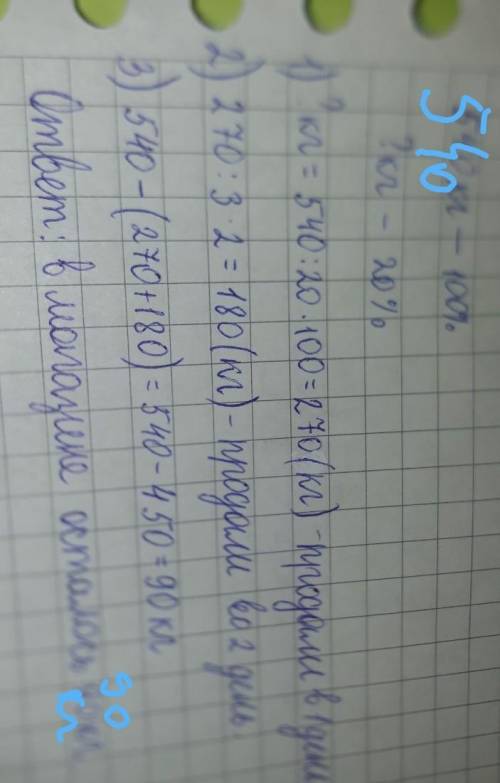 540 кг - 100%
?кг - 20%
1) ? кг = 540:20·100=270(кг) - продали в 1 день
2) 270:3·2=180(кг) - продали во 2 день
3) 540-(270+180)=540-450=90 кг
Ответ: в магазине осталось 90 кг